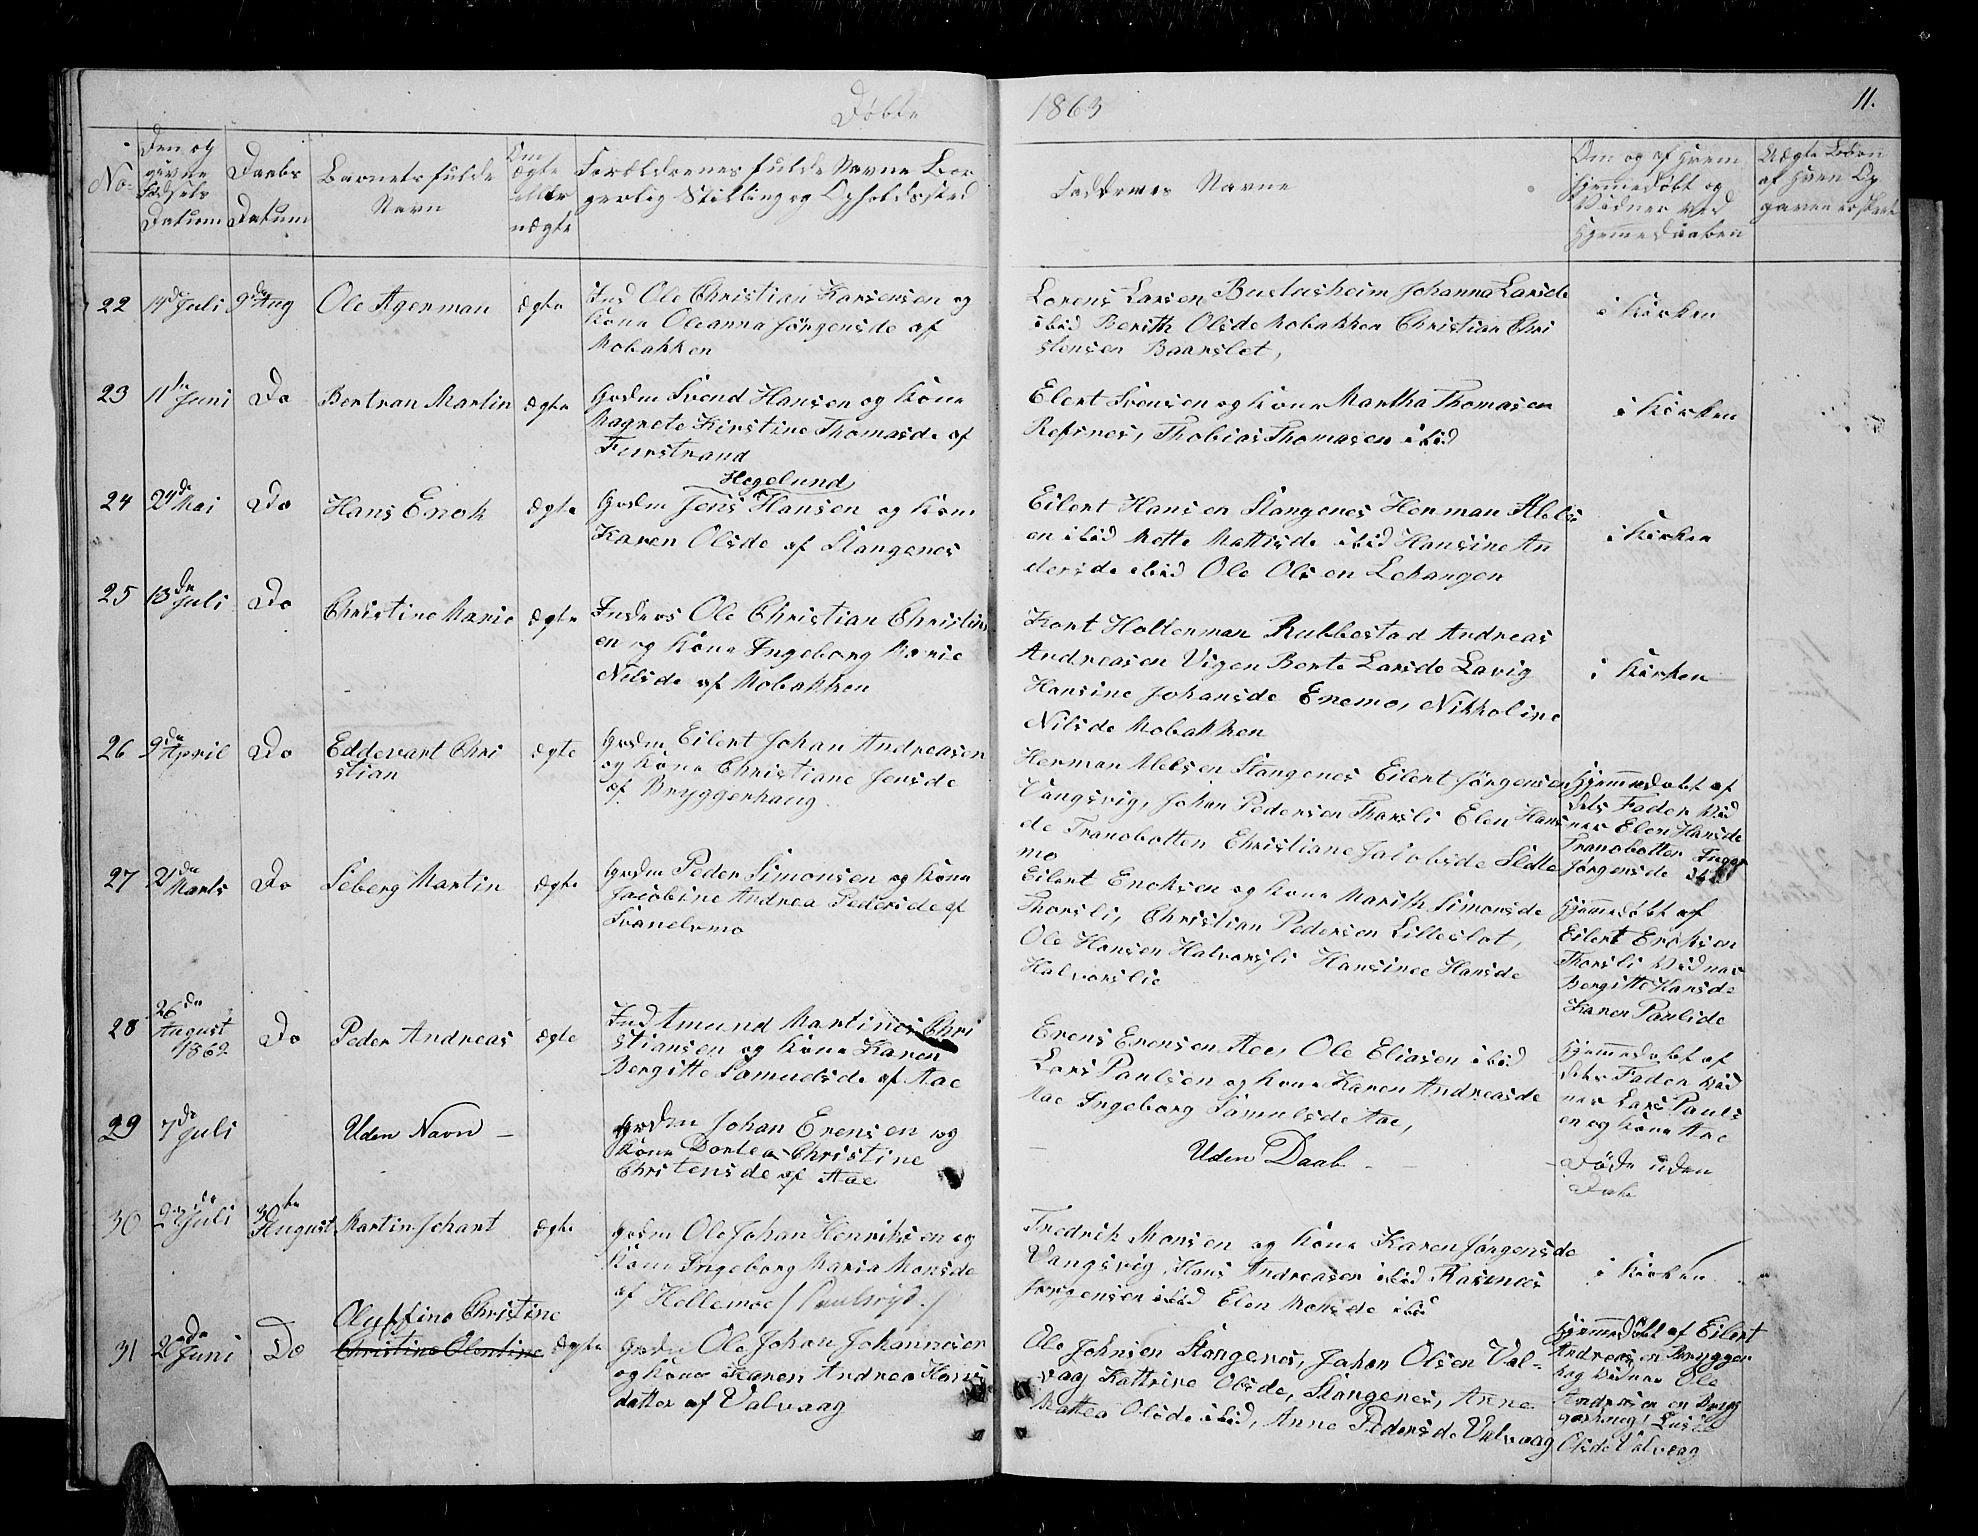 Døbte 1863 11.
No. Den og givne Fødsels Datum
Daabs Datum
Barnets fulde Navn
Om ægte eller uægte
Forældrenes fulde Navne Borgerlig Stilling og Opholdssted
Faddernes Navne
Om og af hvem hjemmedøbt og Vidner ved hjemmedaaben
22 Juli 9de Aug Ole Agerman ægte
Ind Ole Christian Karsensen og
Kone Oleanna Jørgensde af
Mobakken
Lorens Larsen Bustasheim Johanna Larsde
ibid Berith Olsde Mobakken Christian Chri
stensen Baarslet,
i Kirken
23 11te Juni Do Bertran Martin ægte
Grdm Svend Hansen og Kone
Magrete Kirstine Thomasde af
Furstrand
Elert Svensen og Kone Martha Thomasen
Refsnes, Thobias Thomasen ibid
i Kirken
24 Mai Do Hans Enok ægte
Hogelund
Grdm Jens Hansen og Kone
Karen Olsde af Stangenes
Eilert Hansen Stangenes Herman Abels
en ibid Mette Mattisde ibid Hansine An
dersde ibid Ole Olsen Lekangen
i Kirken
25 13de Juli Do Christine Marie ægte
Inders Ole Christian Christins
en og Kone Ingeborg Marie
Nilsde af Mobakken
Kort Holterman Rubbestad Andreas
Andreasen Vigen Berte Larsde Lavig
Hansine Johansde Enemo, Nikkoline
Nilsde Mobakken
i Kirken
26 9de April Do Eddevart Chri
stian
ægte
Grdm Eilert Johan Andreasen
og Kone Christiane Jensde
af Bryggerhaug
Herman Abelsen Stangenes Eilert Jørgensen
Vangsvig, Johan Pedersen Thorsli Elen Hans
de Tranobotten Christiane Jakobsde Sldte
mo
Hjemmedøbt af
dets Fader Vid
ner Elen Hansde
Tranobotten Inger
Jørgensde ibid
27 Marts Do Seberg Martin ægte
Grdm Peder Simonsen og Kone
Jacobine Andrea Pedersde af
Svanelvmo
Eilert Enoksen og Kone Marith Simonsde
Thorsli, Christian Pedersen Lilleslat,
Ole Hansen Halvorsli Hansinee Hansde
Halvorslie
Hjemmedøbt af
Eilert Enoksen
Thorsli Vidner
Bergitte Hansde
Karen Paulsde
28 26de
August
1862
Do Peder Andreas ægte
Ind Amund Martines Chri
stiansen og Kone Karen
Bergitte Samuelsde af Aae
Erens Erensen Aae, Ole Eliasen ibid
Lars Paulsen og Kone Karen Andreasde
Aae Ingeborg Samulsde Aae,
Hjemmedøbt af
dets Fader Vid
ner Lars Pauls
en og Kone Aae
29 7de Juli Uden Navn —
Grdm Johan Erensen og
Kone Dortea Christine
Christensde af Aae
— Uden Daab — —
Døde uden
Dab
30 Juli 30te August Martin Johart ægte
Grdm Ole Johan Henriksen og
Kone Ingeborg Maria Monsde
af Hellemoe
Fredrik Monsen og Kone Karen Jørgensde
Vangsvig, Hans Andreasen ibid Rasmus
Jørgensen ibid Elen Monsde ibid
i Kirken
31 Juni Do Oluffine Christine
Christine Olentine
ægte
Grdm Ole Johan Johannesen
og Kone Karen Andrea Hans
datter af Valvaag
Ole Johnsen Stangenes, Johan Olsen Val-
vag Kattrine Olsde, Stangenes, Anne
Mattea Olsde ibid, Anne Pedersde Valvaag
Hjemmedøbt af Eilert
Andreasen Brygger
hag Vidner Ole
Andersen
Olsde Valvaag